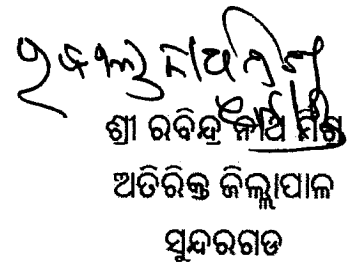 ଶ୍ରୀ ରବିନ୍ଦ୍ର ନାଥ ମିଶ୍ର
ଅତିରିକ୍ତ ଜିଲ୍ଲାପାଳ
ସୁନ୍ଦରଗଡ